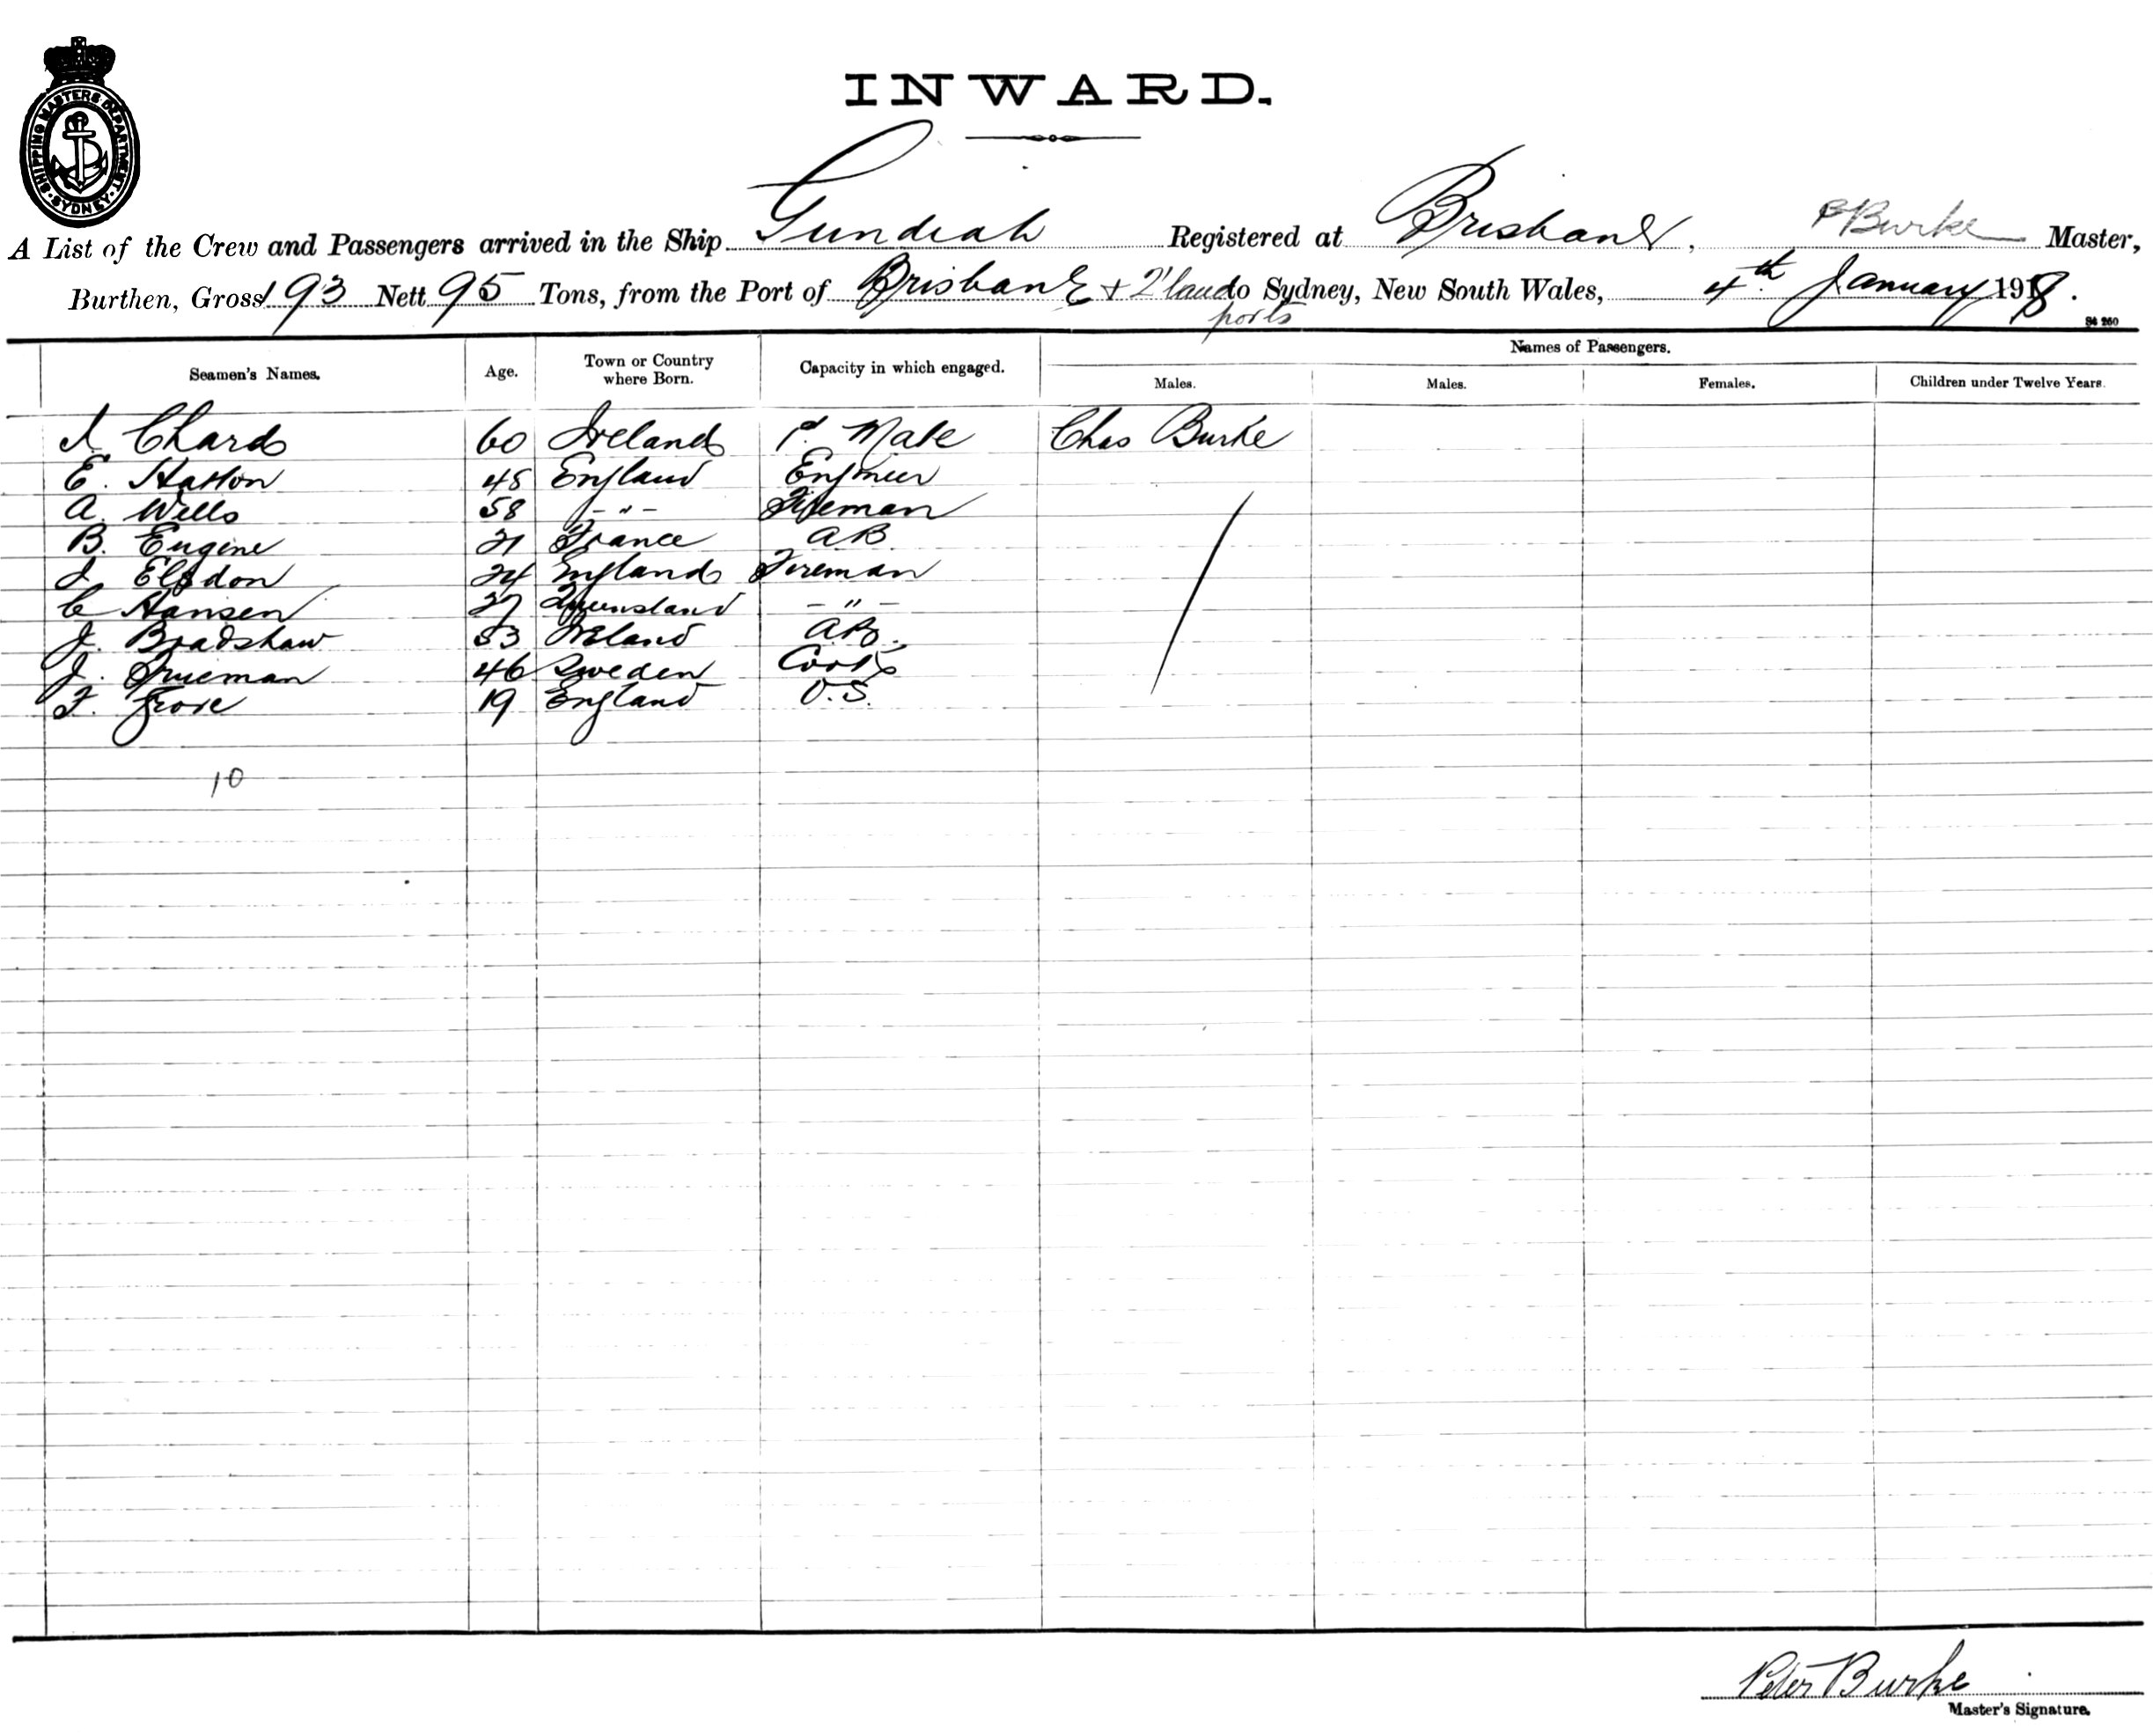 SHIPPING MASTERS DEPARTMENT SYDNEY
INWARD.
A List of the Crew and Passengers arrived in the Ship Gundiah Registered at Brisbane, P Burke Master,
Burthen, Gross 193 Nett 95 Tons, from the Port of Brisbane + Q'land ports to Sydney, New South Wales, 4th January 1918.
St 260
Seamen's Names. Age. Town or Country where Born. Capacity in which engaged. Names of Passengers.
Males. Males. Females. Children under Twelve Years.
Chard 60 Ireland 1st Mate Chas Burke
E. Hatton 48 England Engineer
A. Wells 58 -"- Fireman
B. Eugine 21 France AB
Elsdon 24 England Fireman
C Hansen 27 Queensland -"-
J. Bradshaw 53 Ireland AB.
J. 46 Sweden Cook
F. Grove 19 England O.S.
10
Peter Burke
Master's Signature.